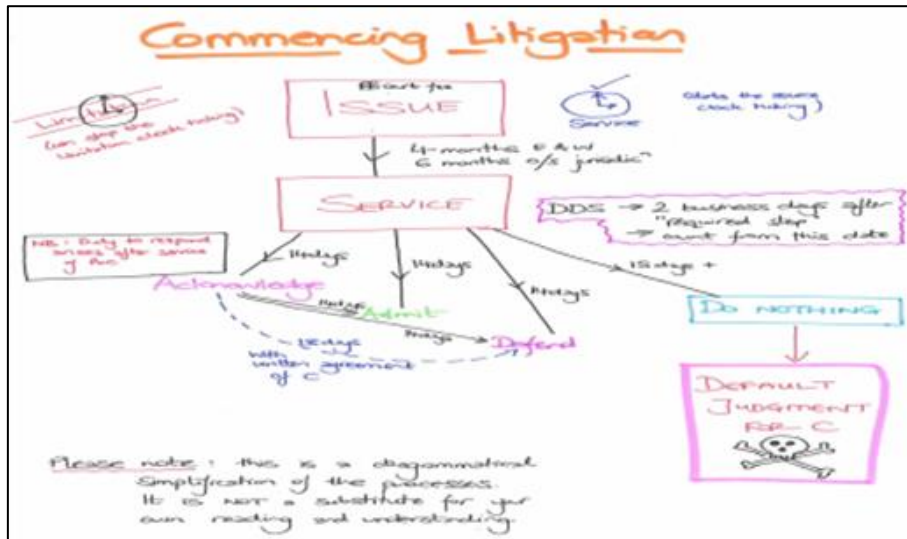 Commencing Litigation
court fee
ISSUE
Limitation
(can stop the
limitation clock ticking)
Service
(starts the service
clock ticking)
4 months E & W
6 months o/s jurisdicⁿ
SERVICE
DDS → 2 business days after
"required step
→ count from this date
NB: Duty to respond
arises after service
of PoC
14 days
14 days
14 days
15 days +
Acknowledge
14 days
Admit
14 days
Defend
DO NOTHING
28 days
with
written agreement
of C
DEFAULT
JUDGMENT
FOR C
Please note: this is a diagrammatical
simplification of the processes.
It is NOT a substitute for your
own reading and understanding.